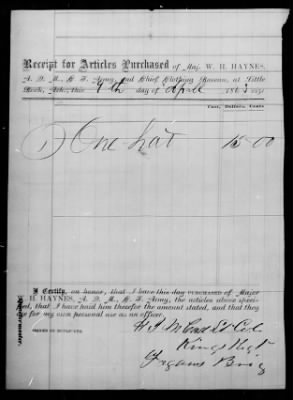 Receipt for Articles Purchased of Maj. W. H. HAYNES,
A. Q. M., C. S. Army, and Chief Clothing Bureau, at Little
Rock, Ark., this 9th day of April 1863
Cost, Dollars. Cents
1 One hat 15 00
I Certify, on honor, that I have this day PURCHASED of Major
W. H. HAYNES, A. Q. M., C. S. Army, the articles above speci-
fied, that I have paid him therefor the amount stated, and that they
are for my own personal use as an officer.
SIGNED IN DUPLICATE.
Lt Col
Kings Regt
Brig